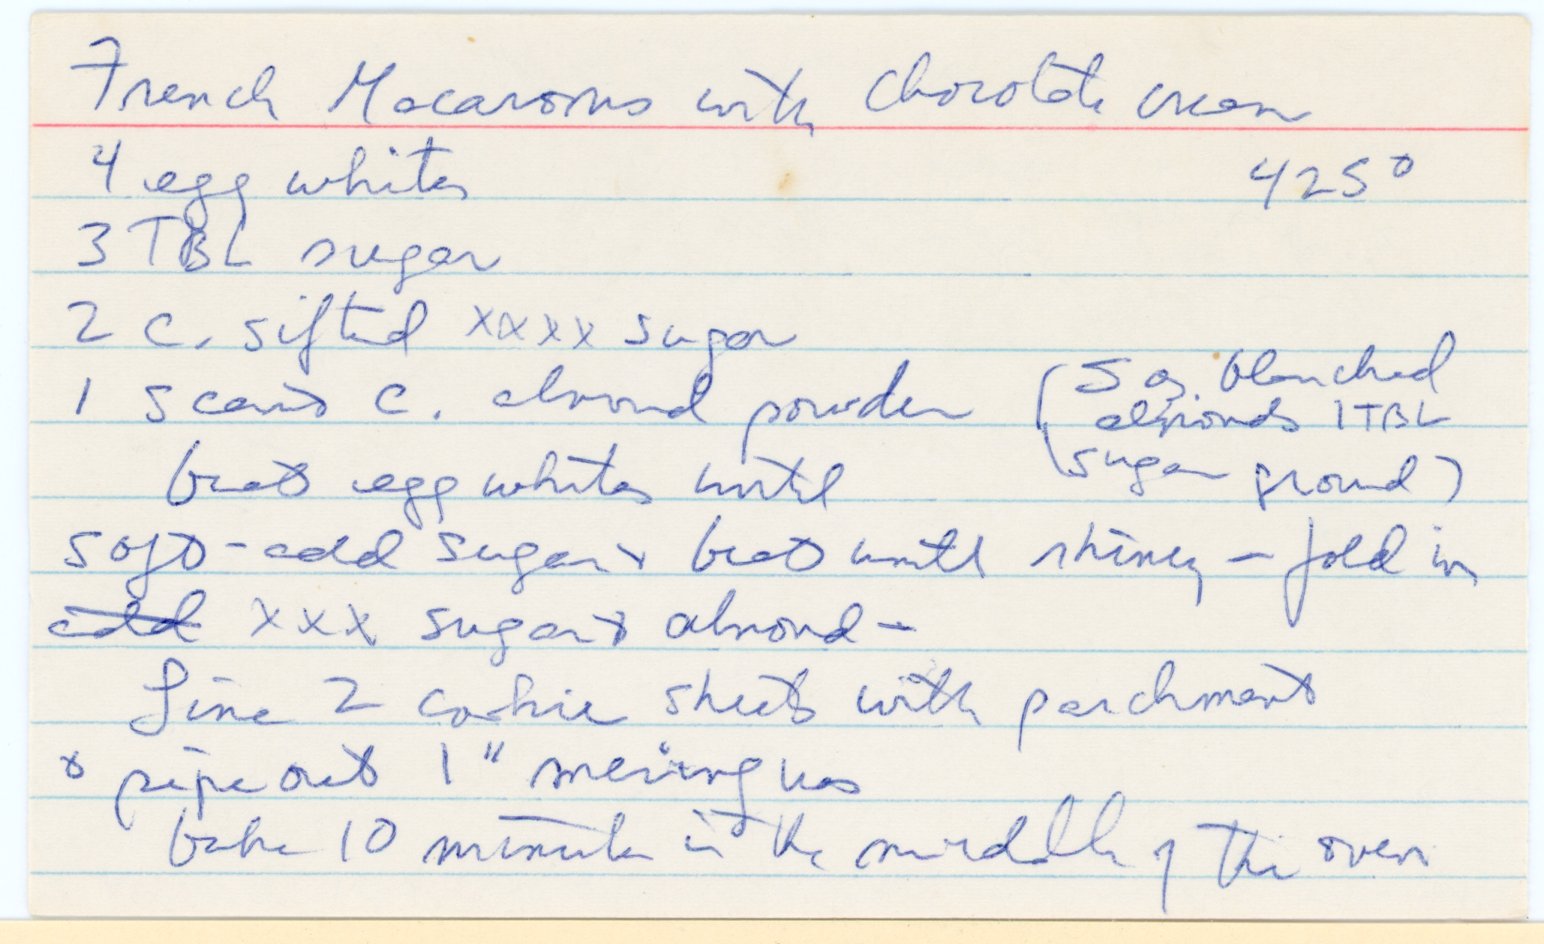 French Macaroons with chocolate cream
4 egg whites
425°
3 TBL sugar
2 c. sifted xxxx sugar
1 scant c. almond powder
(5 oz blanched
almonds 1 TBL
sugar ground)
beat egg whites until
soft - add sugar & beat until shiney - fold in
add xxx sugar & almond -
Line 2 cookie sheets with parchment
& pipe out 1" meringues
bake 10 minutes in the middle of the oven